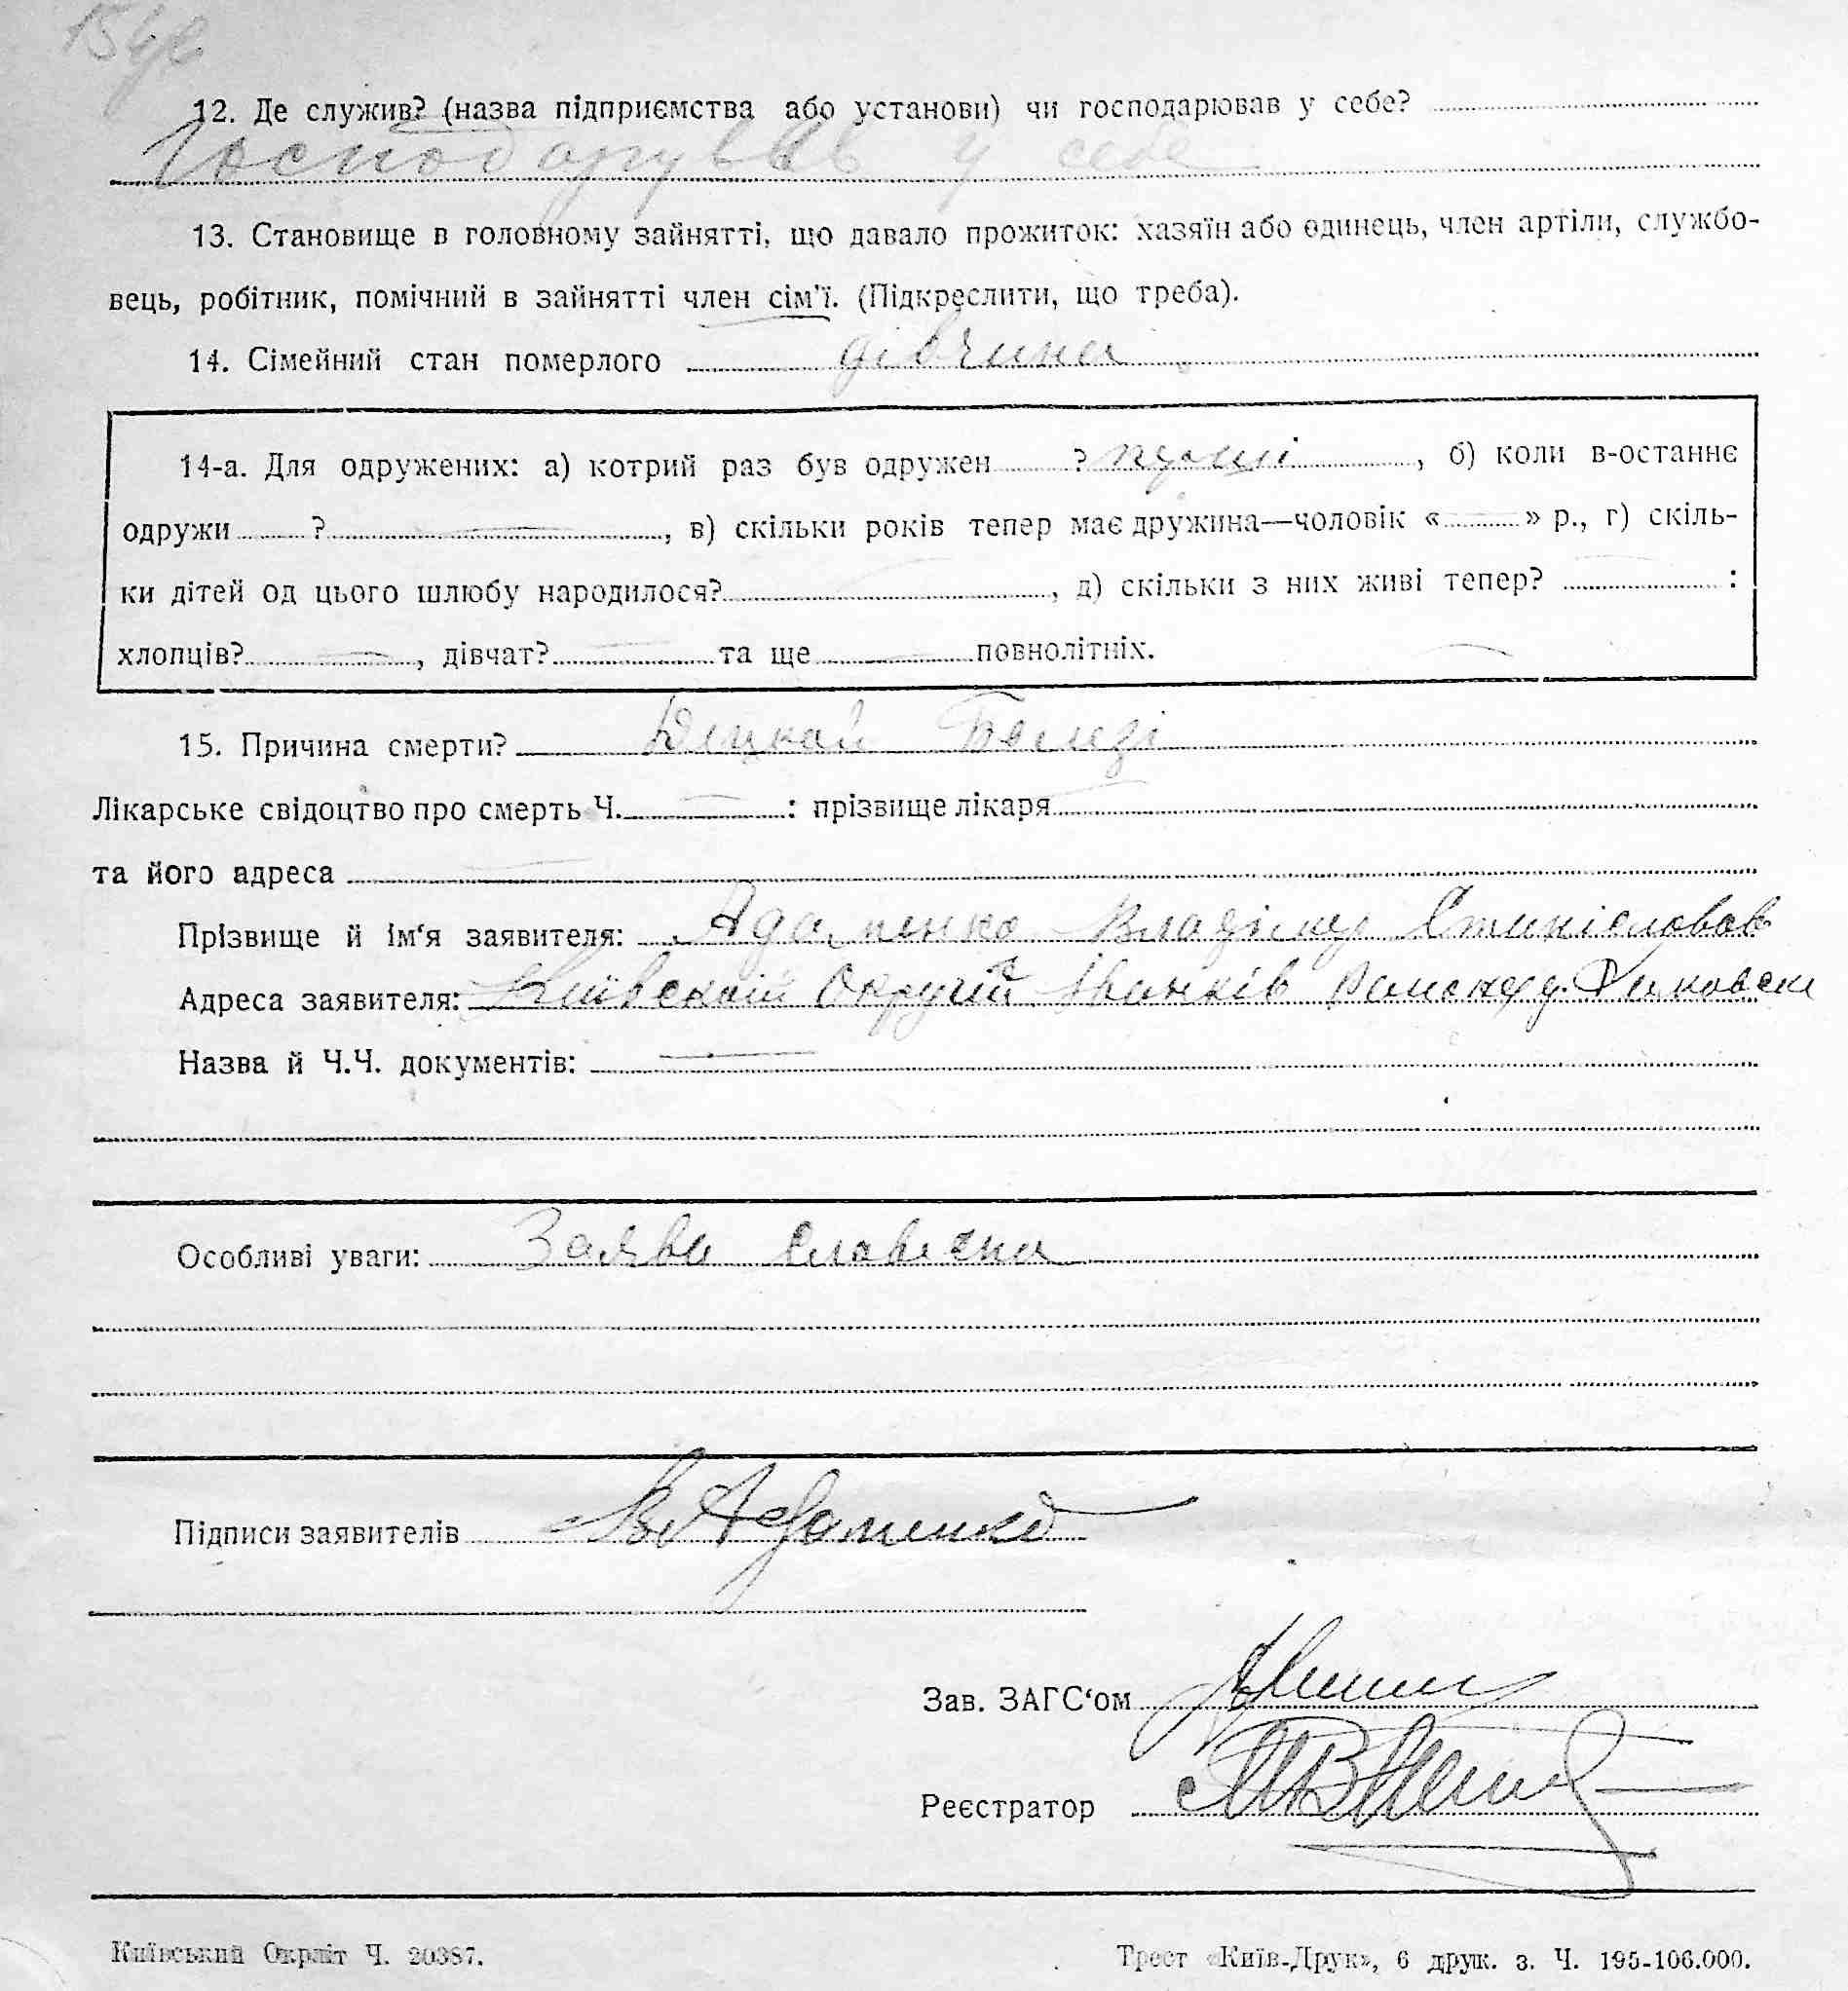 12. Де служив? (назва підприємства або установи) чи господарював у себе?
Господарував у себе
13. Становище в головному зайнятті, що давало прожиток: хазяїн або одинець, член артіли, службо-
вець, робітник, помічний в зайнятті член сім'ї. (Підкреслити, що треба).
14. Сімейний стан померлого дівчина
14-а. Для одружених: а) котрий раз був одружен ? , б) коли в-останнє
одружи ? , в) скільки років тепер має дружина—чоловік « » р., г) скіль-
ки дітей од цього шлюбу народилося? , д) скільки з них живі тепер? :
хлопців? , дівчат? та ще повнолітніх.
15. Причина смерти?
Лікарське свідоцтво про смерть Ч. : прізвище лікаря
та його адреса
Прізвище й ім'я заявителя: Адаменко Владімир
Адреса заявителя: Київскоій Округи Іванків
Назва й Ч.Ч. документів:
Особливі уваги: Заява словесна
Підписи заявителів В. Адаменко
Зав. ЗАГС'ом
Реєстратор
Київський Окрліт Ч. 20387. Трест «Київ-Друк», 6 друк. з. Ч. 195-106.000.